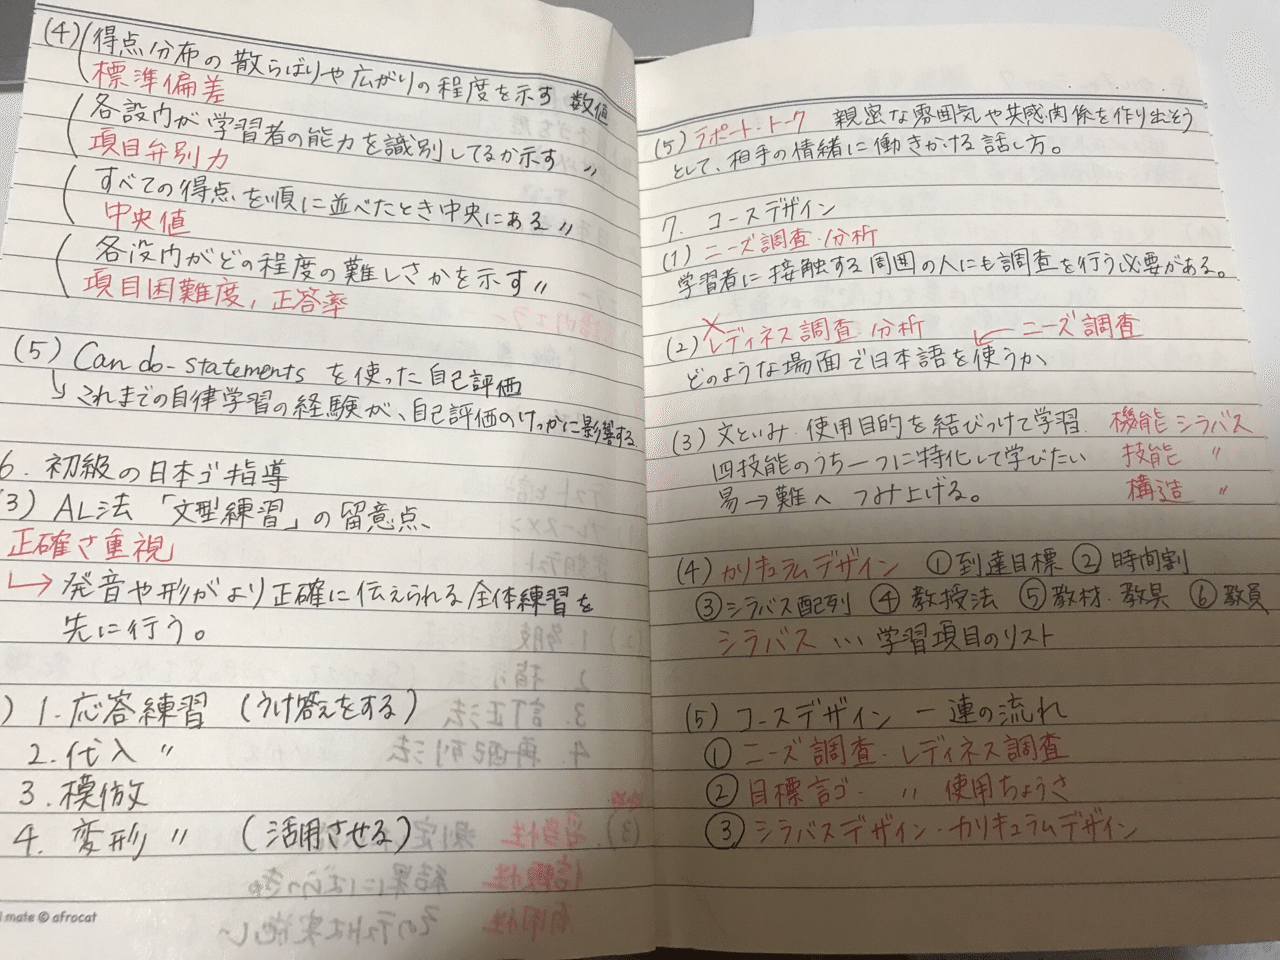 (4) 得点分布の散らばりや広がりの程度を示す 数値
標準偏差
各設内が学習者の能力を識別してるか示す 〃
項目弁別力
すべての得点を順に並べたとき中央にある 〃
中央値
各設内がどの程度の難しさかを示す 〃
項目困難度, 正答率
(5) Can do-statements を使った自己評価
↳ これまでの自律学習の経験が、自己評価のけっかに影響する
6. 初級の日本ゴ指導
(3) AL法 「文型練習」の留意点、
正確さ重視
↳ 発音や形がより正確に伝えられる全体練習を
先に行う。
) 1. 応答練習 (うけ答えをする)
2. 代入 〃
3. 模倣
4. 変形 〃 (活用させる)
mate © afrocat
(5) ラポート・トーク 親密な雰囲気や共感関係を作り出そう
として、相手の情緒に働きかける話し方。
7. コースデザイン
(1) ニーズ調査・分析
学習者に接触する周囲の人にも調査を行う必要がある。
(2) レディネス調査 分析 ← ニーズ調査
どのような場面で日本語を使うか
(3) 文といみ・使用目的を結びつけて学習. 機能シラバス
四技能のうち一つに特化して学びたい 技能 〃
易→難へ つみ上げる。 構造 〃
(4) カリキュラムデザイン ①到達目標 ②時間割
③シラバス配列 ④教授法 ⑤教材・教具 ⑥教員
シラバス … 学習項目のリスト
(5) コースデザイン 一連の流れ
① ニーズ調査・レディネス調査
② 目標言ゴ・ 〃 使用ちょうさ
③ シラバスデザイン・カリキュラムデザイン